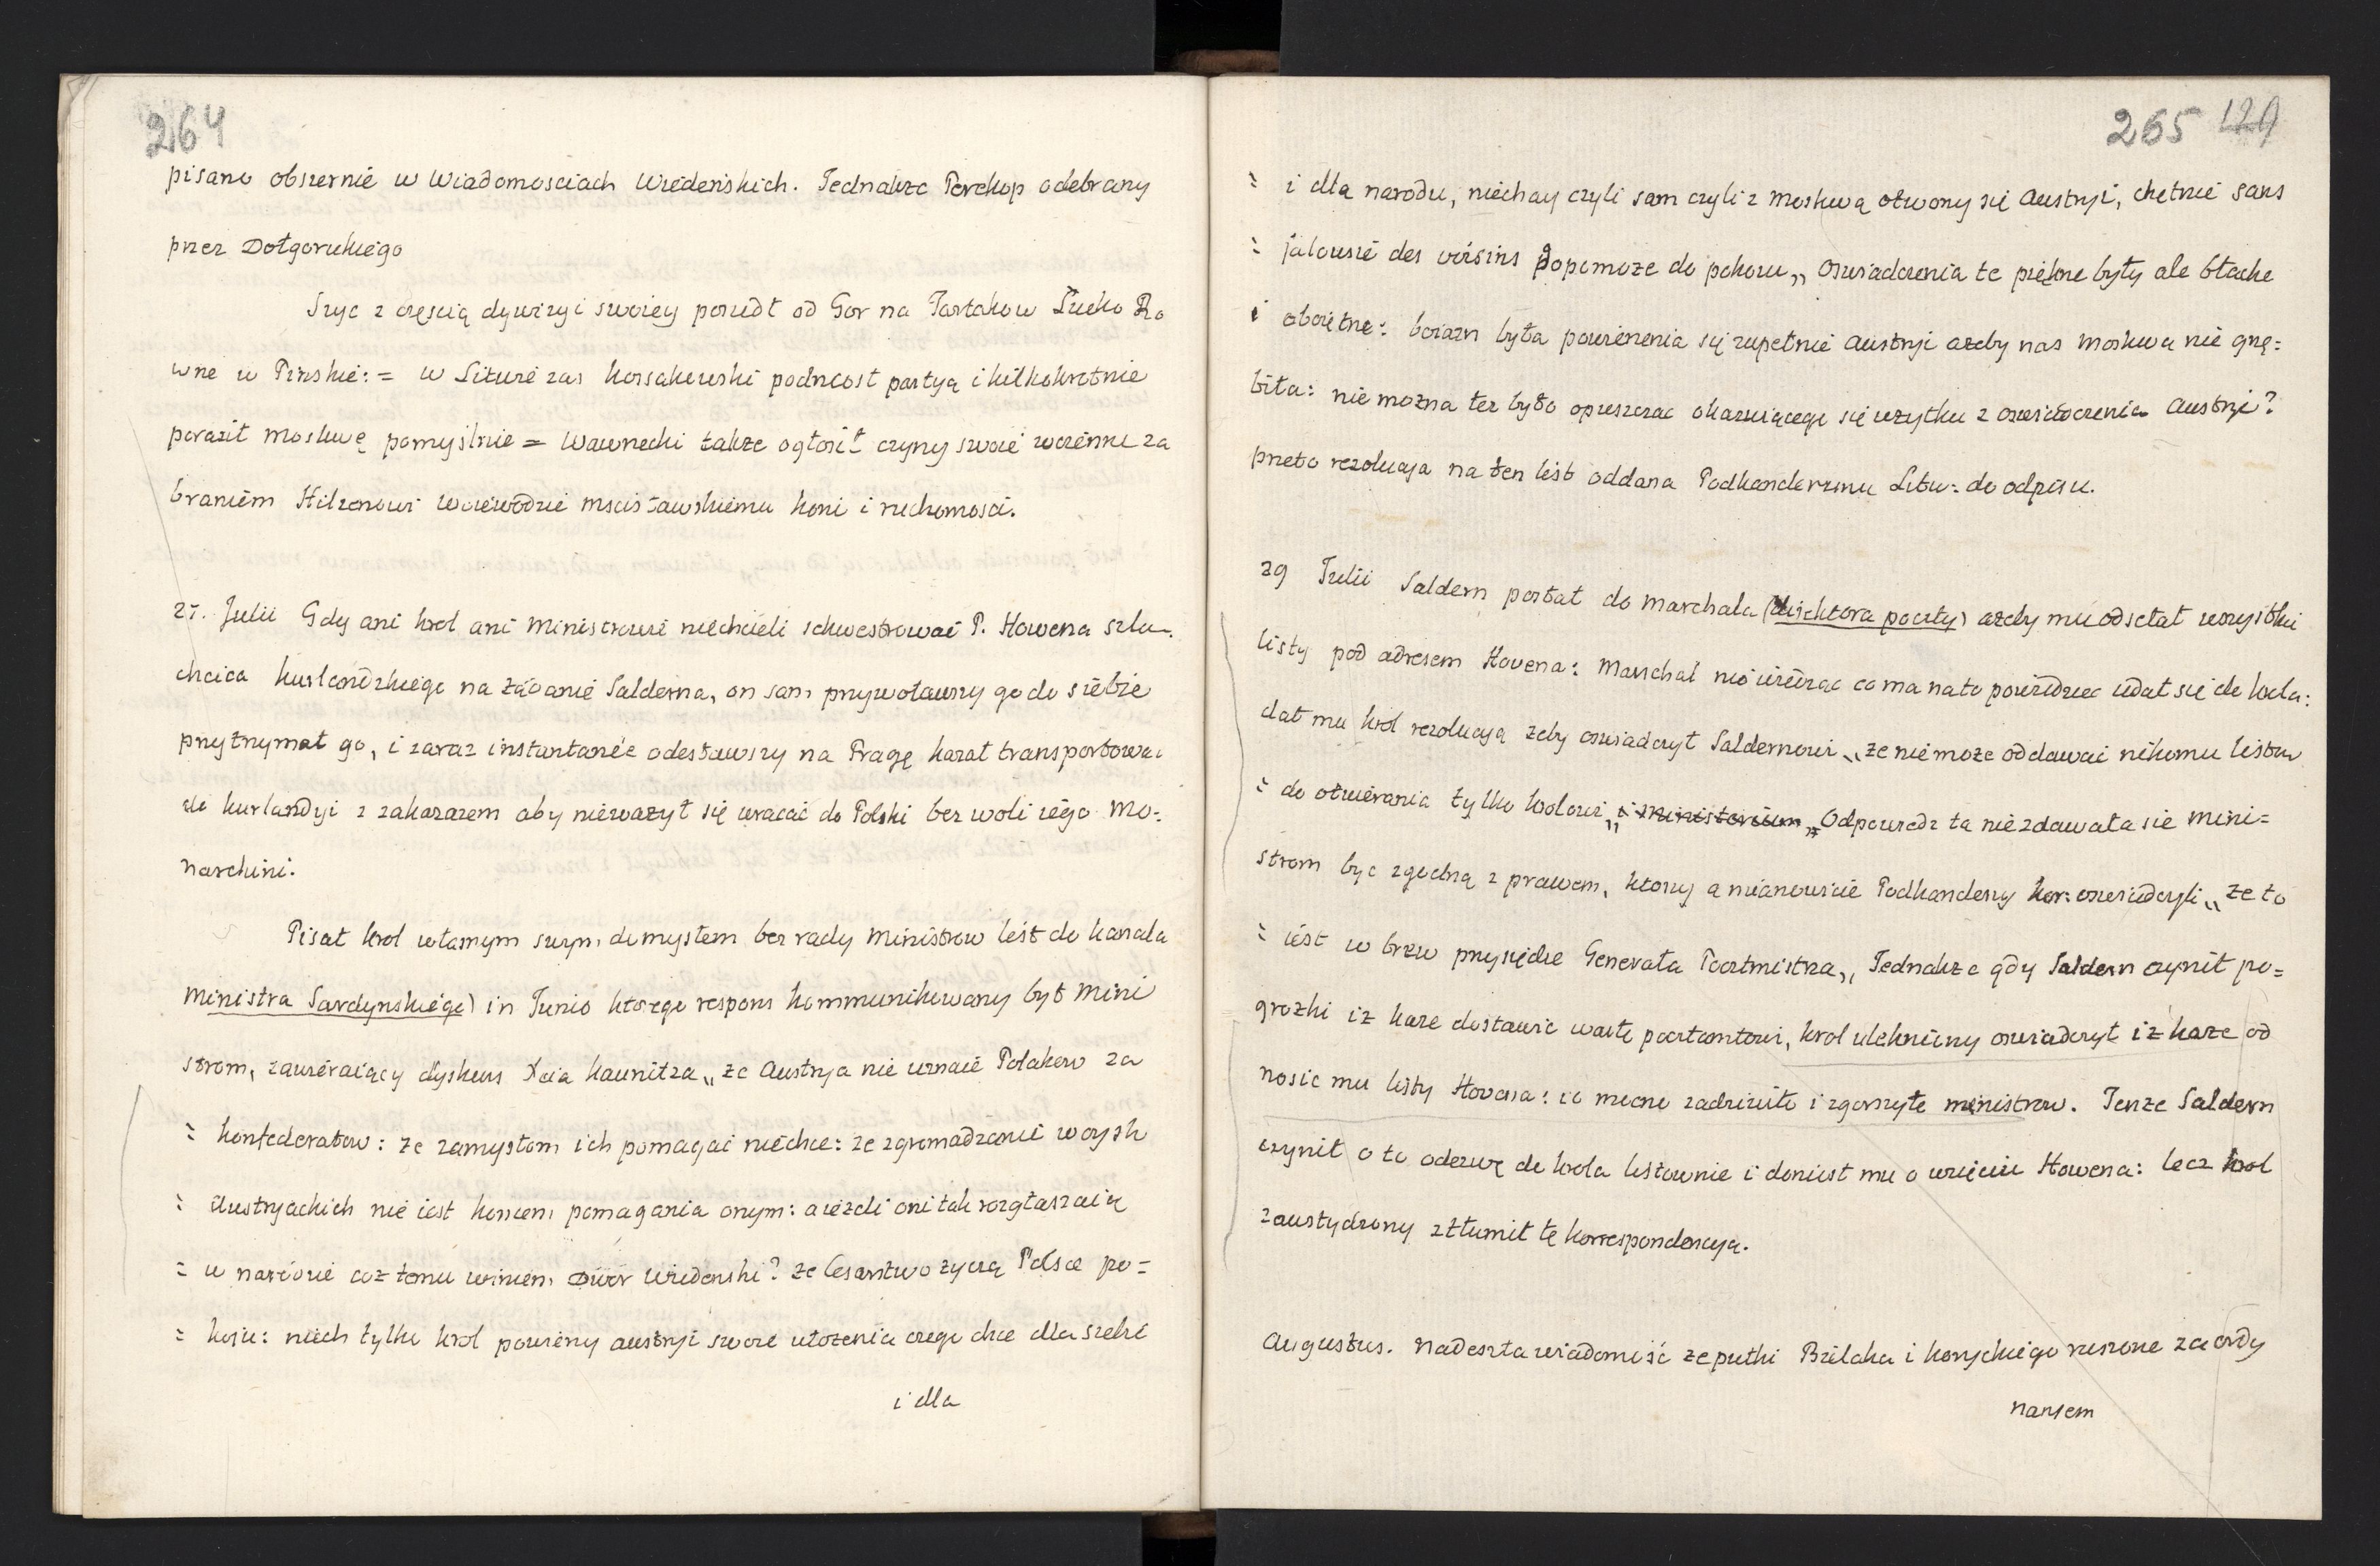 264
pisano obszernie w Wiadomosciach Wiedeńskich. Jednakże Perekop odebrany
przez Dołgorukiego
Szyc z częscią dywizyi swoiey poszedł od Gor na Tartakow Łucko Ro
wne w Pinskie: = w Liturie zas Kossakowski podniost partyą i kilkokrotnie
poraził Moskwę pomyślnie = Wawrzecki takze ogłosił czyny swoie woienne za
braniem Hilzenowi woiewodzie Mscisławskiemu koni i ruchomosci.
27. Julii Gdy ani krol ani Ministrowie niechcieli sekwestrowac P. Howena szla-
chcica kurlandzkiego na żądanie Salderna, on sam przywoławszy go do siebie
przytrzymał go, i zaraz instantanée odesławszy na Pragę kazał transportowac
do Kurlandyi z zakazazem aby nieważył się wracać do Polski bez woli iego Mo:
narchini.
Pisał krol własnym swym domysłem bez rady Ministrow list do Kanala
Ministra Sardynskiego) in Junio ktorego respons kommunikowany był Mini
strom, zawieraiący dyskurs Xcia Kaunitza „ze Austrya nie uznaie Polakow za
= konfederatow: ze zamysłom ich pomagać niechce: ze zgromadzenie woysk
= Austryackich nie iest koncem pomagania onym: a ieżeli oni tak rozgłaszaią
= w narodzie coż temu winien dwor wiedenski? ze Cesarstwo życzą Polsce po=
= koju: niech tylko krol powierzy Austryi swoie ułożenia czego chce dla siebie
i dla
265 129
= i dla narodu, niechay czyli sam czyli z Moskwą otworzy się Austryi, chętnie sans
= jalousie des voisins dopomoze do pokoiu„ Oswiadczenia te piękne były ale błache
i oboiętne: boiazn była powierzenia się zupełnie Austryi azeby nas Moskwa nie gnę=
biła: nie można tez było opuszczac okazuiącego się uzytku z oswiadczenia Austryi?
przeto rezolucya na ten list oddana Podkanclerzemu Litw: do odpisu.
29 Julii Saldern posłał do Marchala (direktora poczty) azeby mu odsełał wszystkie
listy pod adresem Hovena: Marschal nie wiedząc co ma na to powiedziec udał się do krola:
dał mu krol rezolucyą zeby oswiadczył Saldernowi „ze niemoże oddawać nikomu listow
= do otwierania tylko krolowi„ i ministerium„ Odpowiedz ta niezdawała sie mini=
strom być zgodną z prawem, ktorzy a mianowicie Podkanclerzy kor: oswiadczyli „ze to
= iest w brew przysiędze Generała Poczmistrza„ Jednakze gdy Saldern czynił po=
grozki iz kaze dostawić wartę pocztamtowi, krol ulekniony oswiadczył iz kaze od
nosic mu listy Hovena: co mocno zadziwiło i zgorszyło ministrow. Tenze Saldern
czynił o to odezwę do krola listownie i doniusł mu o wzięciu Howena: lecz krol
zawstydzony ztłumił tę korrespondencya.
Augustus. Nadeszła wiadomość ze pułki Bielaka i Koryckiego ruszone za ordy
nansem